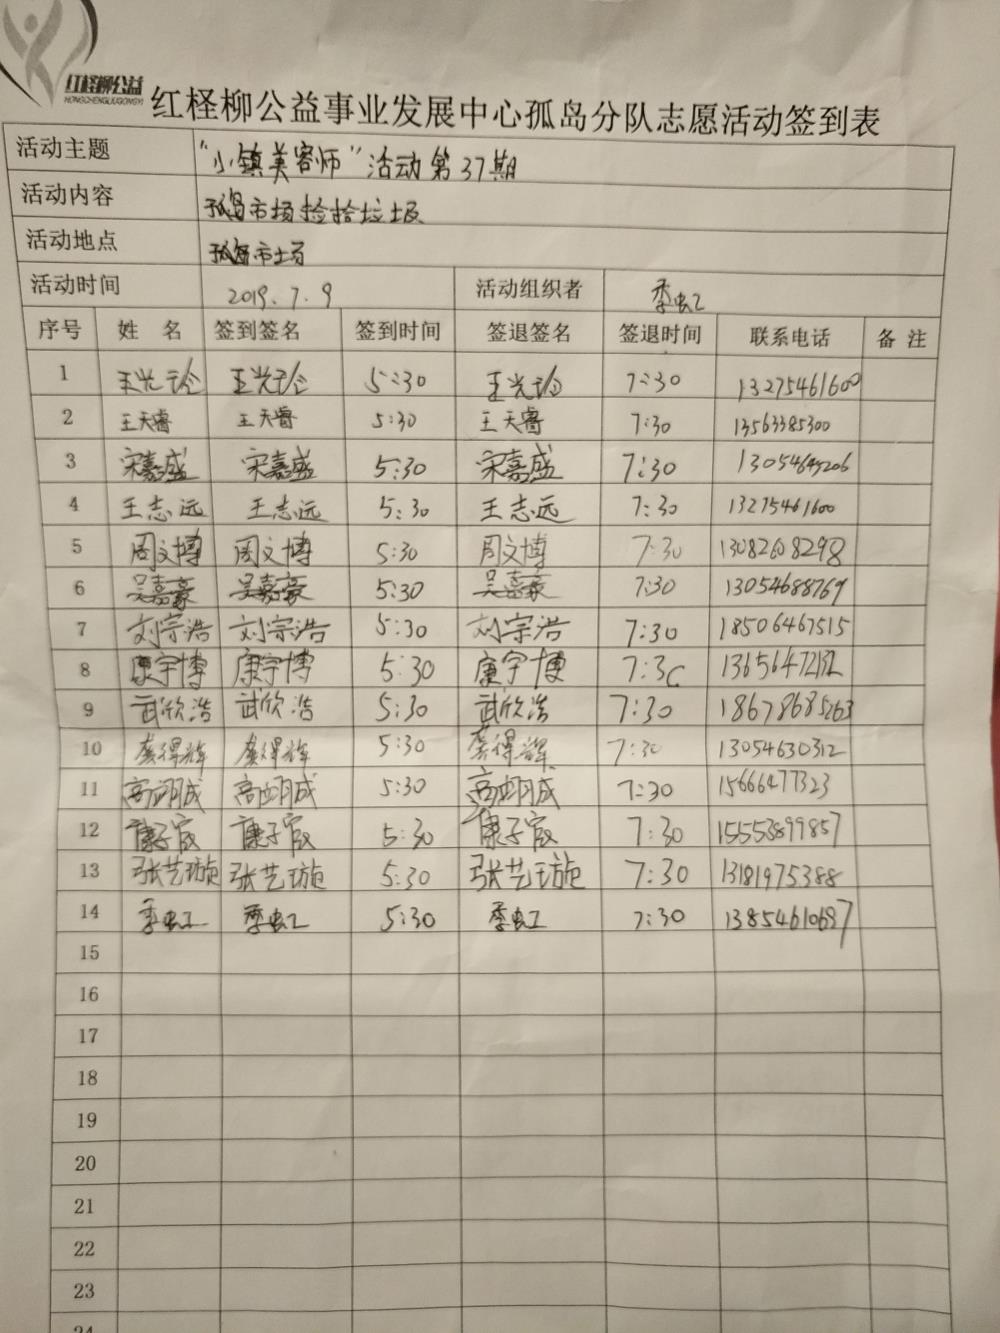 红柽柳公益
HONGCHENGLIUGONGYI
红柽柳公益事业发展中心孤岛分队志愿活动签到表
活动主题 “小镇美容师”活动第37期
活动内容 孤岛市场捡拾垃圾
活动地点 孤岛市场
活动时间 2019.7.9 活动组织者 季虹
序号 姓 名 签到签名 签到时间 签退签名 签退时间 联系电话 备 注
1 王光玲 王光玲 5:30 王光玲 7:30 13275461600
2 王天睿 王天睿 5:30 王天睿 7:30 13563385300
3 宋嘉盛 宋嘉盛 5:30 宋嘉盛 7:30
4 王志远 王志远 5:30 王志远 7:30 13275461600
5 周文博 周文博 5:30 周文博 7:30 13082608298
6 吴嘉豪 吴嘉豪 5:30 吴嘉豪 7:30 13054688769
7 刘宗浩 刘宗浩 5:30 刘宗浩 7:30 18506467515
8 康宇博 康宇博 5:30 康宇博 7:30
9 武欣浩 武欣浩 5:30 武欣浩 7:30 18678685263
10 龚得辉 龚得辉 5:30 龚得辉 7:30 13054630312
11 高翊成 高翊成 5:30 高翊成 7:30 15666477323
12 5:30 7:30 15553899857
13 张艺璇 张艺璇 5:30 张艺璇 7:30 13181975388
14 季虹 季虹 5:30 季虹 7:30 13854610697
15
16
17
18
19
20
21
22
23
24